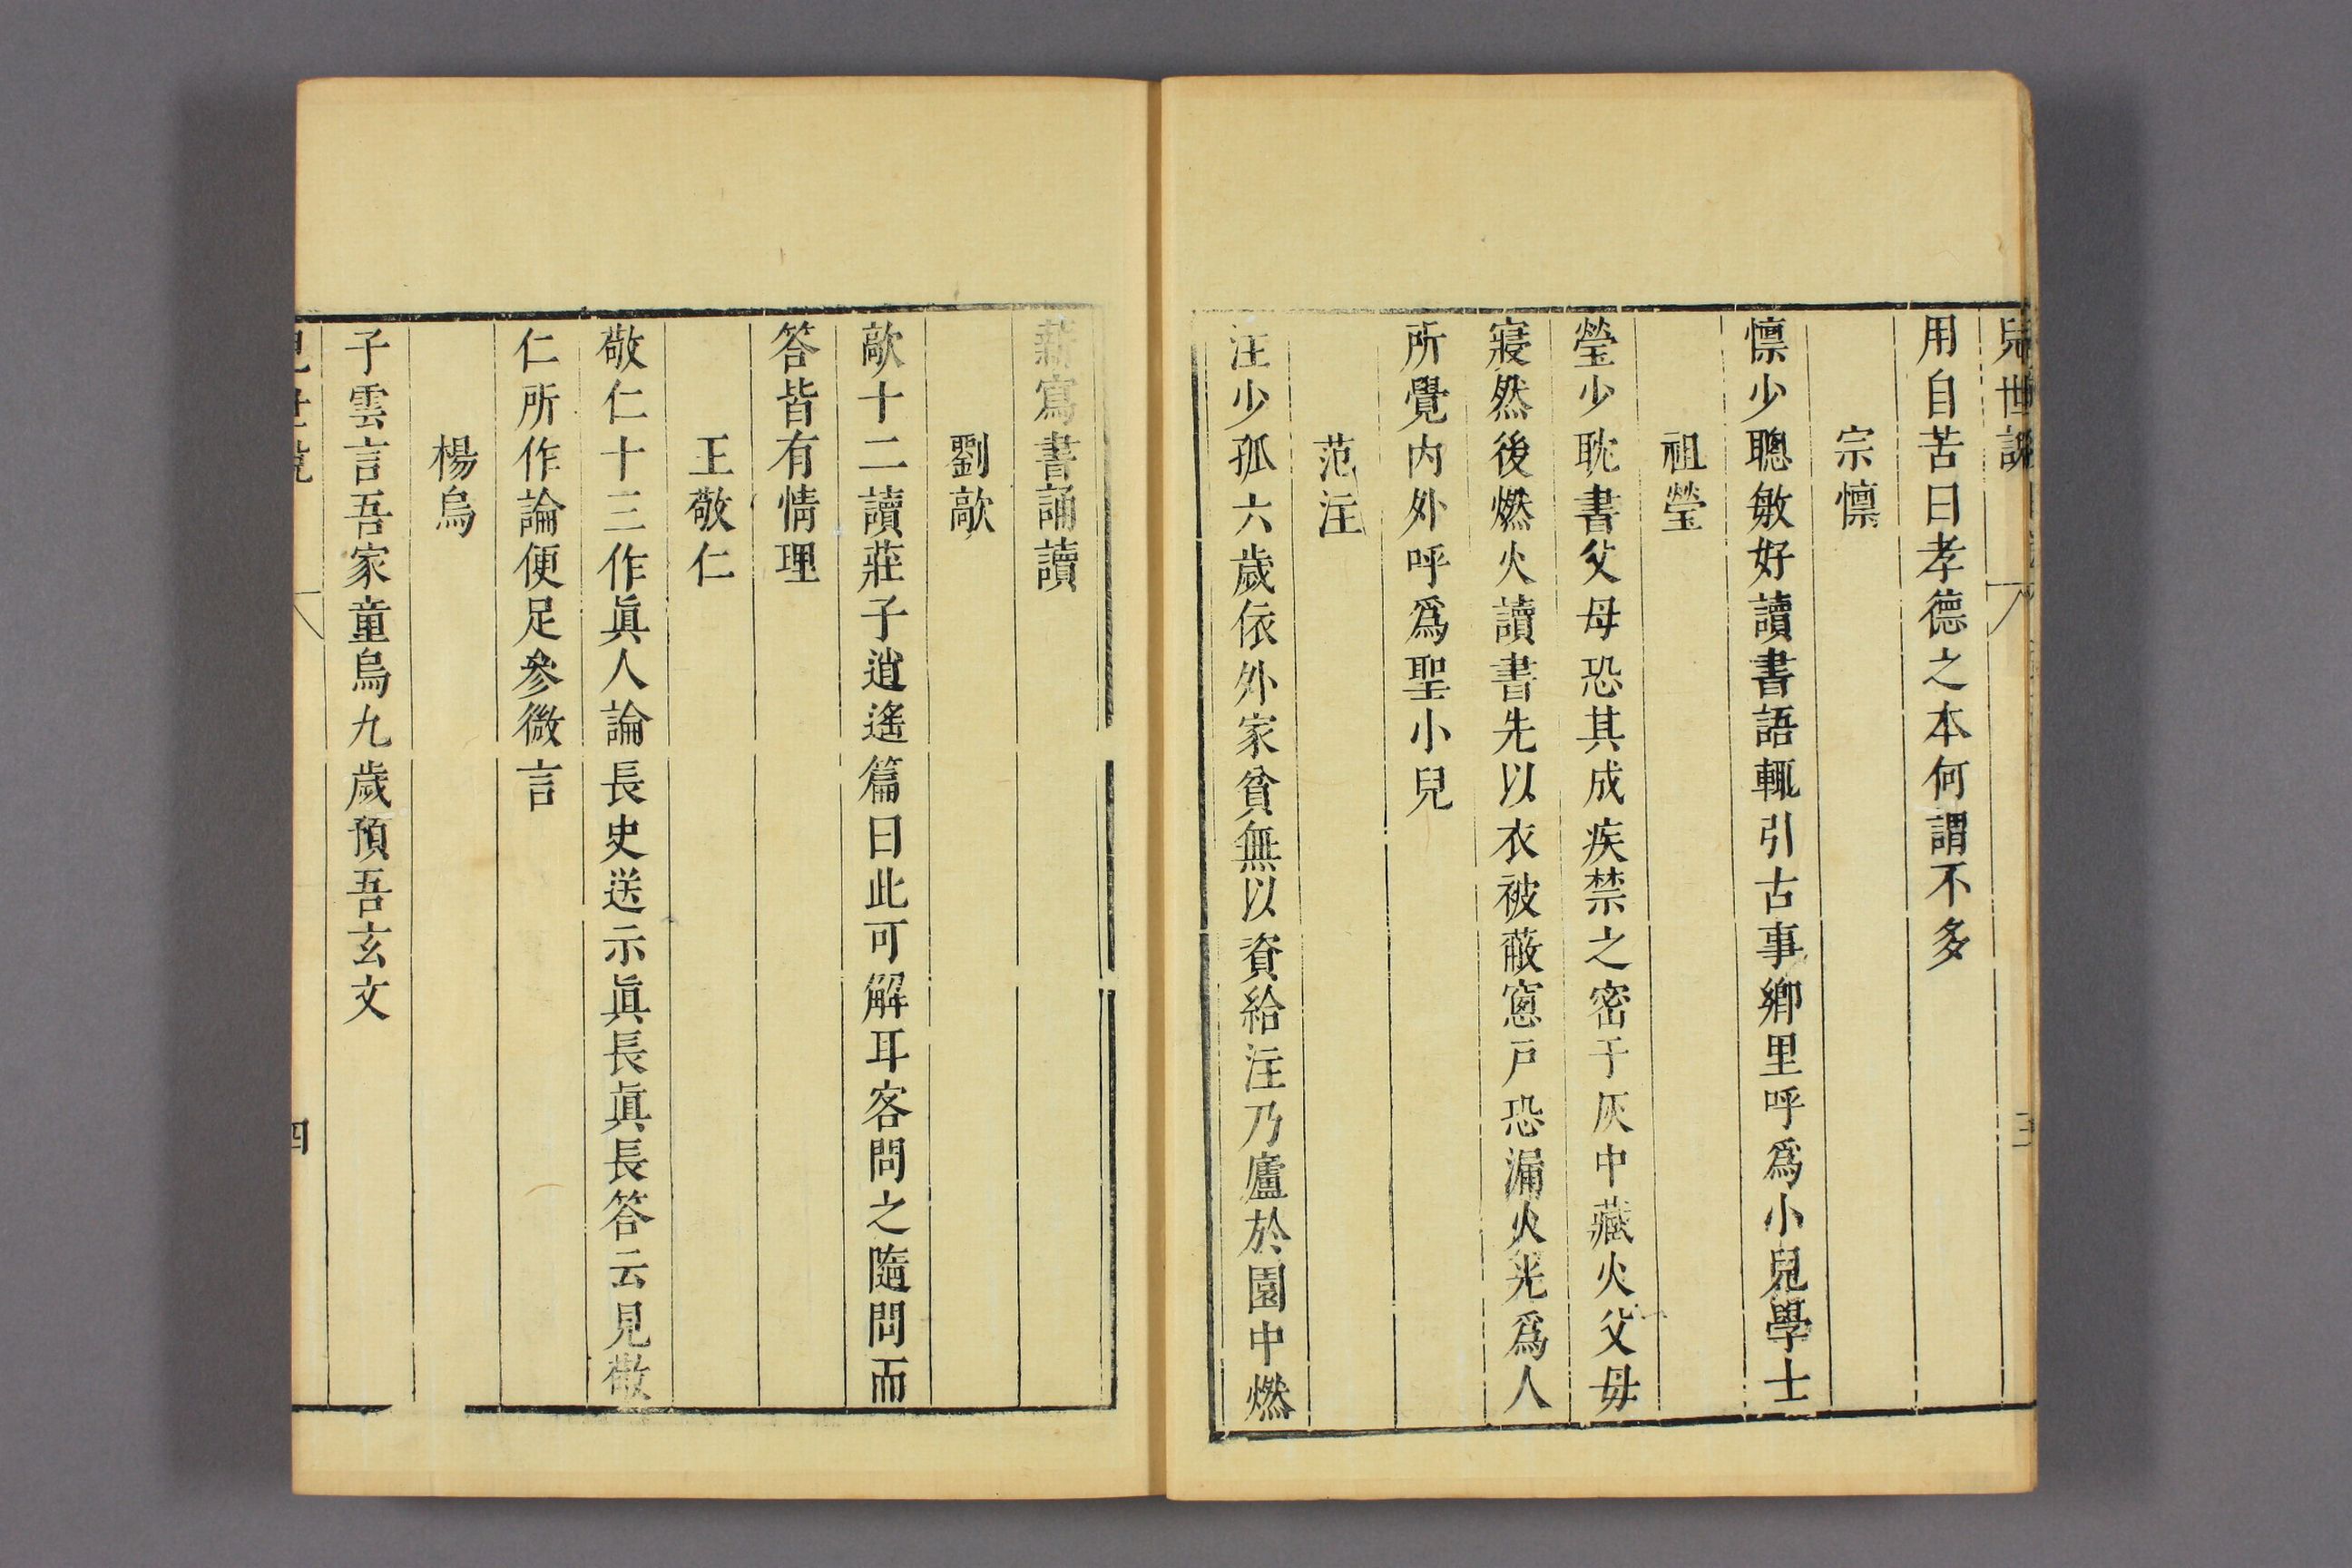 兒世說
三
用自苦曰孝德之本何謂不多
宗懍
懍少聰敏好讀書語輒引古事鄉里呼爲小兒學士
祖瑩
瑩少耽書父母恐其成疾禁之密于灰中藏火父毋
寢然後燃火讀書先以衣被蔽窻戸恐漏火光爲人
所覺内外呼爲聖小兒
范汪
汪少孤六歲依外家貧無以資給汪乃廬於園中燃
薪寫書誦讀
劉歊
歊十二讀莊子逍遙篇曰此可解耳客問之隨問而
答皆有情理
王敬仁
敬仁十三作眞人論長史送示眞長眞長答云見敬
仁所作論便足參微言
楊烏
子雲言吾家童烏九歲預吾玄文
兒世說
四